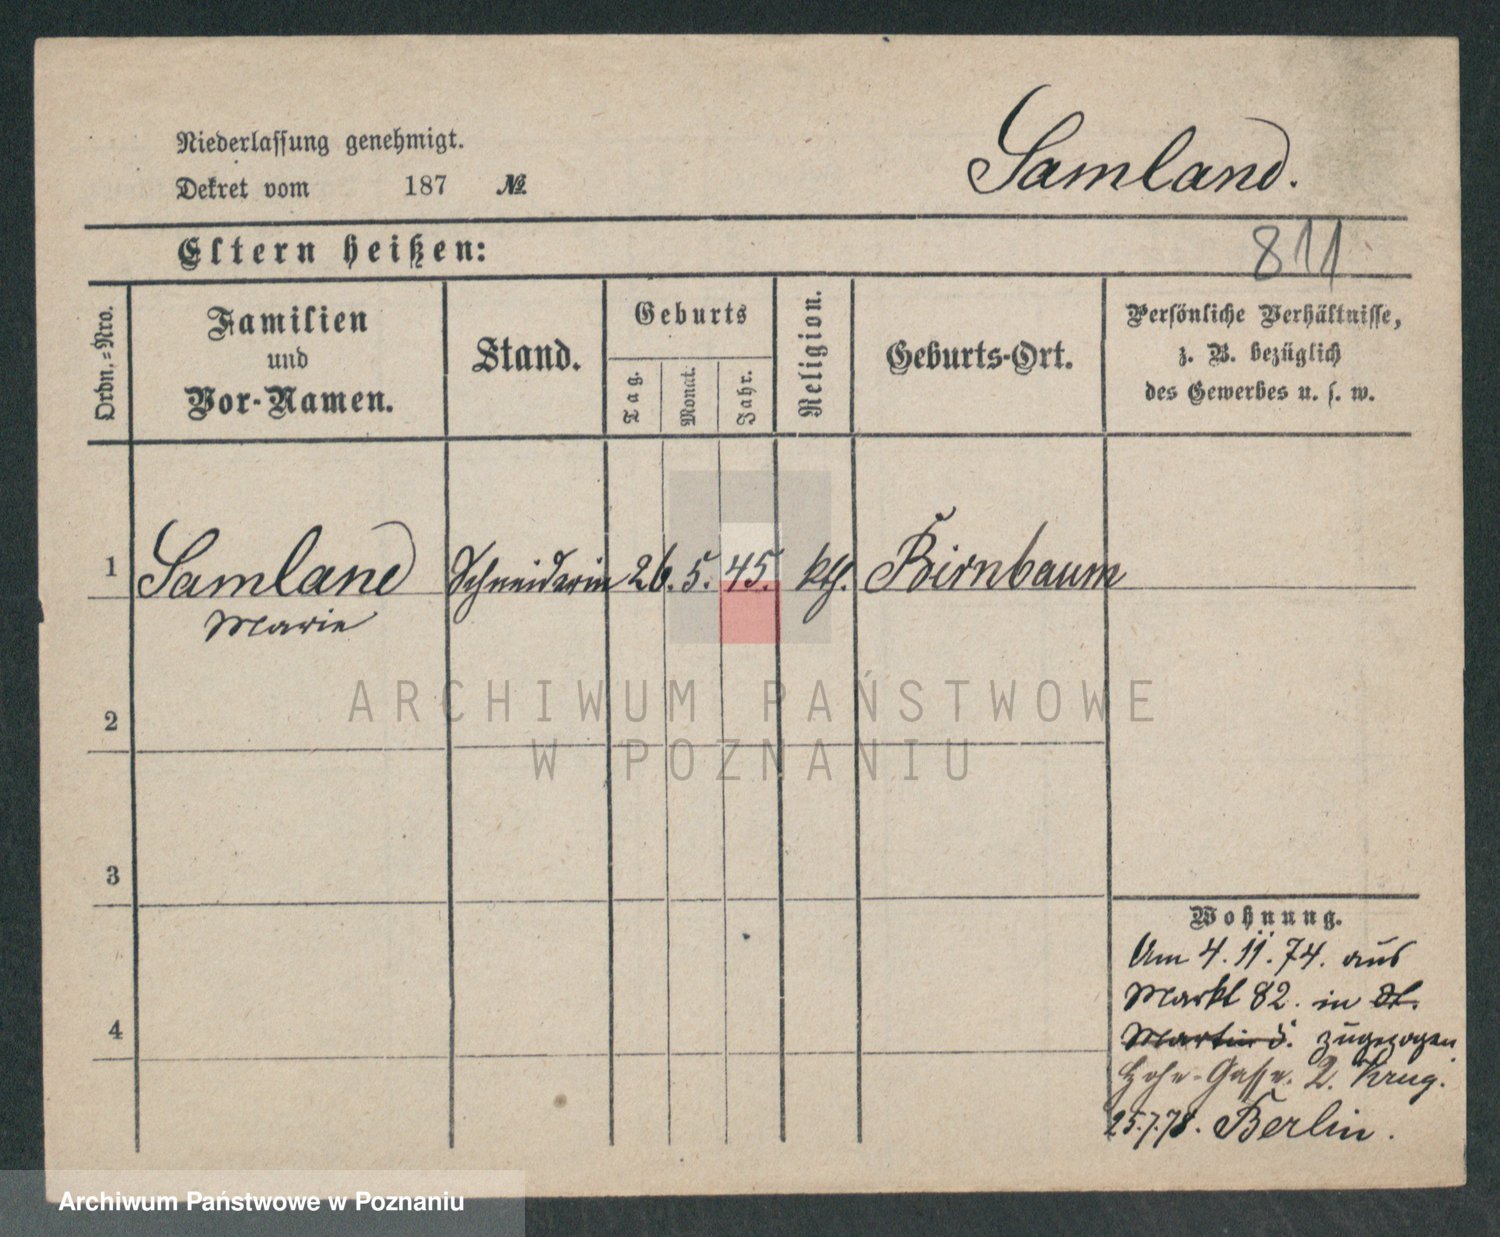 Niederlassung genehmigt.
Dekret vom 187 №
Samland.
Eltern heißen:
811
Ordn.=Nro.
Familien
und
Vor-Namen.
Stand.
Geburts
Tag.
Monat.
Jahr.
Religion.
Geburts-Ort.
Persönliche Verhältnisse,
z. B. bezüglich
des Gewerbes u. s. w.
1 Samland Schneiderin 26. 5. 45. kth. Birnbaum
Marie
2
3
4
Wohnung.
Am 4. 11. 74. aus
Markt 82. in St.
Martin 5. zugezogen
Hohe-Gasse. 2. Krug.
25.7.78. Berlin.
ARCHIWUM PAŃSTWOWE
W POZNANIU
Archiwum Państwowe w Poznaniu